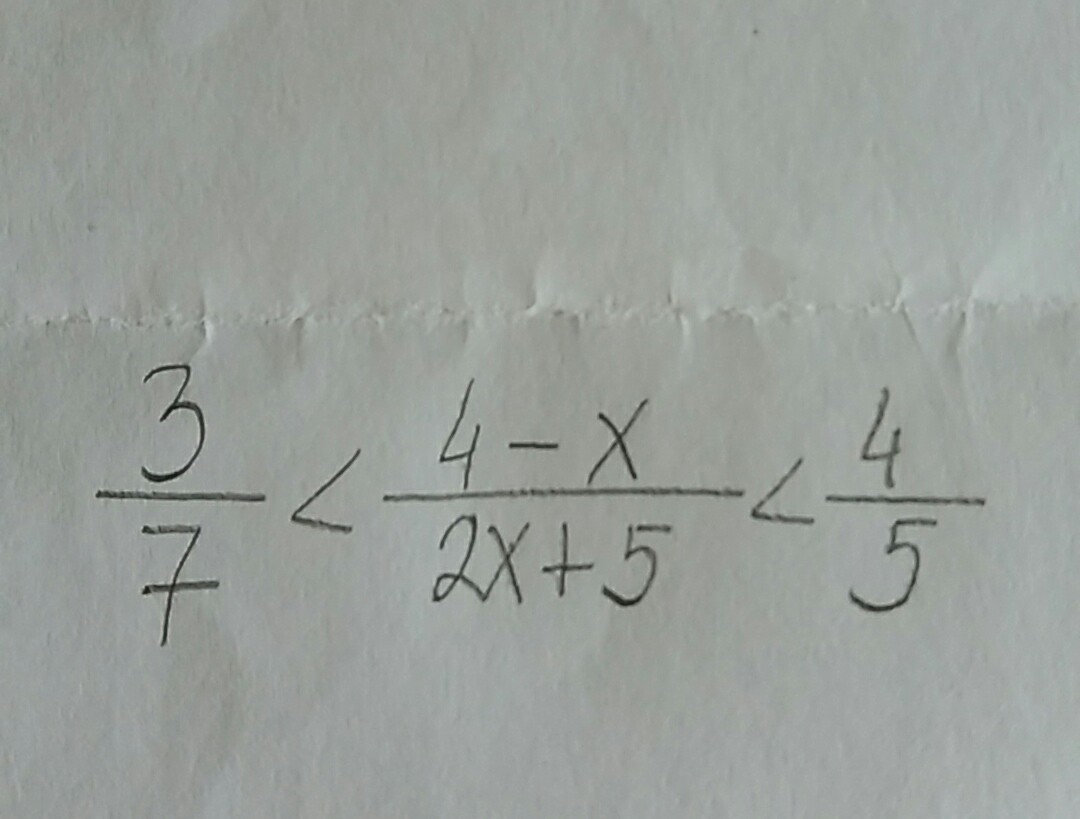 3/7 < (4 - x)/(2x + 5) < 4/5